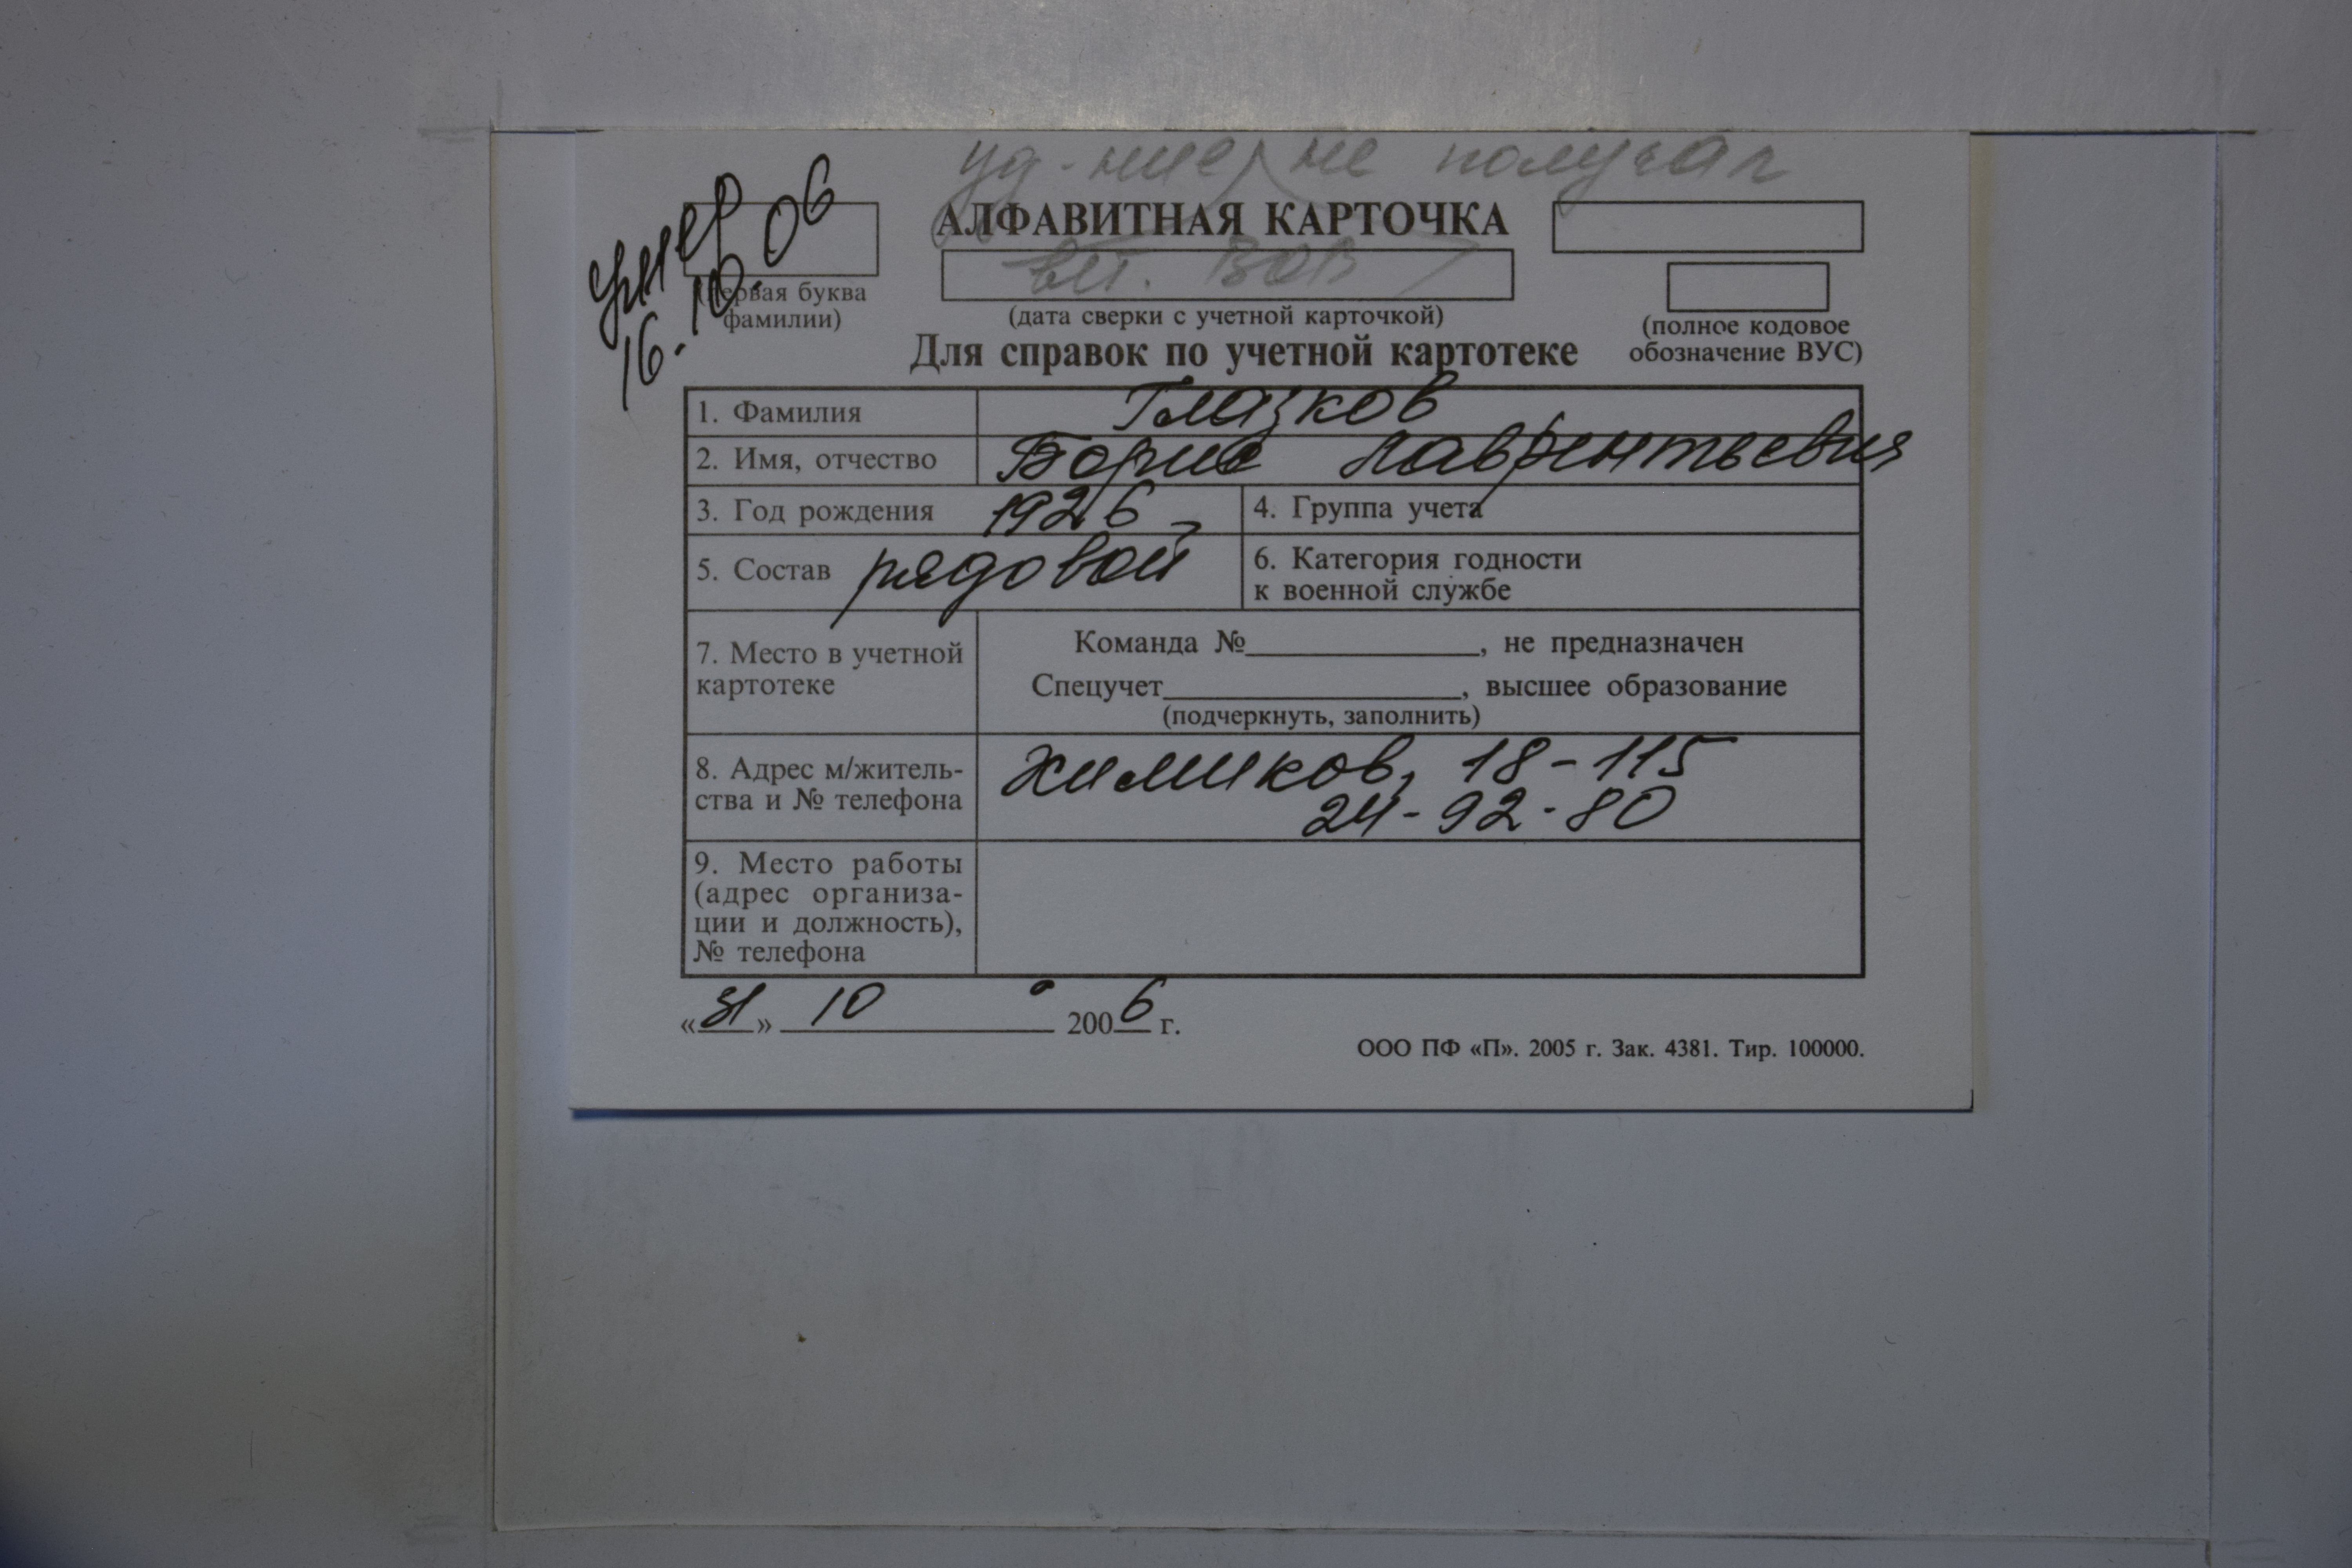 уд-ние не получал
умер
16.10.06
АЛФАВИТНАЯ КАРТОЧКА
вет. ВОВ
(первая буква
фамилии)
(дата сверки с учетной карточкой)
(полное кодовое
обозначение ВУС)
Для справок по учетной картотеке
1. Фамилия Глазков
2. Имя, отчество Борис Лаврентьевич
3. Год рождения 1926
4. Группа учета
5. Состав рядовой
6. Категория годности
к военной службе
7. Место в учетной
картотеке
Команда №____________, не предназначен
Спецучет____________, высшее образование
(подчеркнуть, заполнить)
8. Адрес м/житель-
ства и № телефона
Химиков, 18-115
24-92-80
9. Место работы
(адрес организа-
ции и должность),
№ телефона
«31» 10 2006 г.
ООО ПФ «П». 2005 г. Зак. 4381. Тир. 100000.